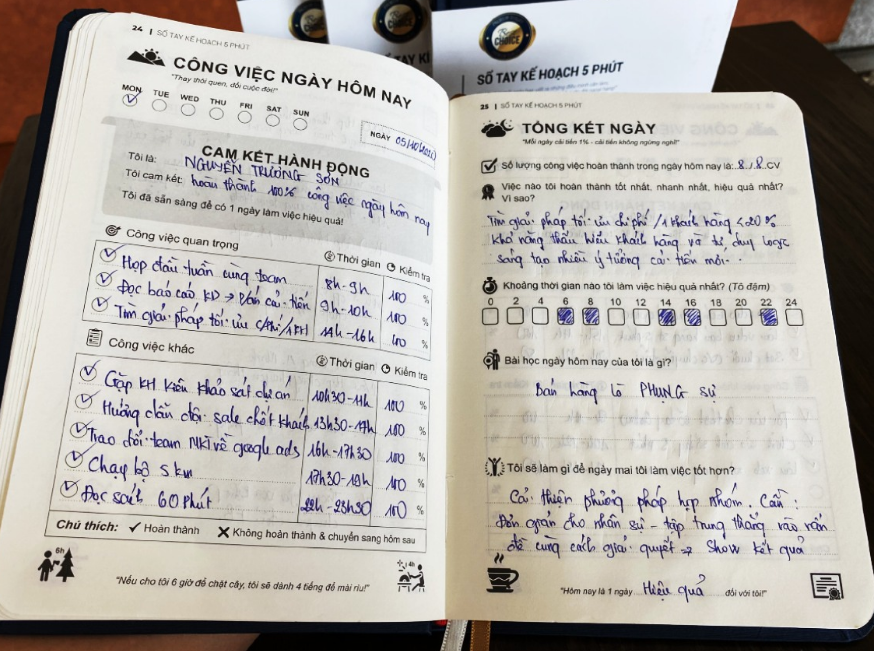 CHOICE
CHOICE
SỔ TAY KẾ HOẠCH 5 PHÚT
24 | SỔ TAY KẾ HOẠCH 5 PHÚT
CÔNG VIỆC NGÀY HÔM NAY
"Thay thói quen, đổi cuộc đời!"
MON TUE WED THU FRI SAT SUN
NGÀY 05/10/
CAM KẾT HÀNH ĐỘNG
Tôi là: NGUYỄN TRƯỜNG SƠN
Tôi cam kết: hoàn thành 100% công việc ngày hôm nay
Tôi đã sẵn sàng để có 1 ngày làm việc hiệu quả!
Công việc quan trọng Thời gian Kiểm tra
Họp đầu tuần cùng team 8h - 9h 100 %
Đọc báo cáo KD → cải tiến 9h - 10h 100 %
Tìm giải pháp tối ưu CPhí/1KH 14h - 16h 100 %
Công việc khác Thời gian Kiểm tra
Gặp KH Kiên khảo sát dự án 10h30 - 11h 100 %
Hướng dẫn đội sale chốt khách 13h30 - 17h 100 %
Trao đổi team MKT về google ads 16h - 17h30 100 %
Chạy bộ 5 km 17h30 - 19h 100 %
Đọc sách 60 phút 22h - 23h30 100 %
Chú thích: ✓ Hoàn thành ✗ Không hoàn thành & chuyển sang hôm sau
6h
4h
"Nếu cho tôi 6 giờ để chặt cây, tôi sẽ dành 4 tiếng để mài rìu!"
25 | SỔ TAY KẾ HOẠCH 5 PHÚT
TỔNG KẾT NGÀY
"Mỗi ngày cải tiến 1% - cải tiến không ngừng nghỉ!"
Số lượng công việc hoàn thành trong ngày hôm nay là: 8 / 8 CV
Việc nào tôi hoàn thành tốt nhất, nhanh nhất, hiệu quả nhất?
Vì sao?
Tìm giải pháp tối ưu chi phí /1 khách hàng ≤ 20%
Khả năng thấu hiểu khách hàng và tư duy logic
sáng tạo nhiều ý tưởng cải tiến mới.
Khoảng thời gian nào tôi làm việc hiệu quả nhất? (Tô đậm)
0 2 4 6 8 10 12 14 16 18 20 22 24
Bài học ngày hôm nay của tôi là gì?
Bán hàng là PHỤNG sự
Tôi sẽ làm gì để ngày mai tôi làm việc tốt hơn?
Cải thiện phương pháp họp nhóm. Cần:
Đơn giản cho nhân sự - tập trung thẳng vào vấn
đề cùng cách giải quyết → Show kết quả
"Hôm nay là 1 ngày Hiệu quả đối với tôi!"